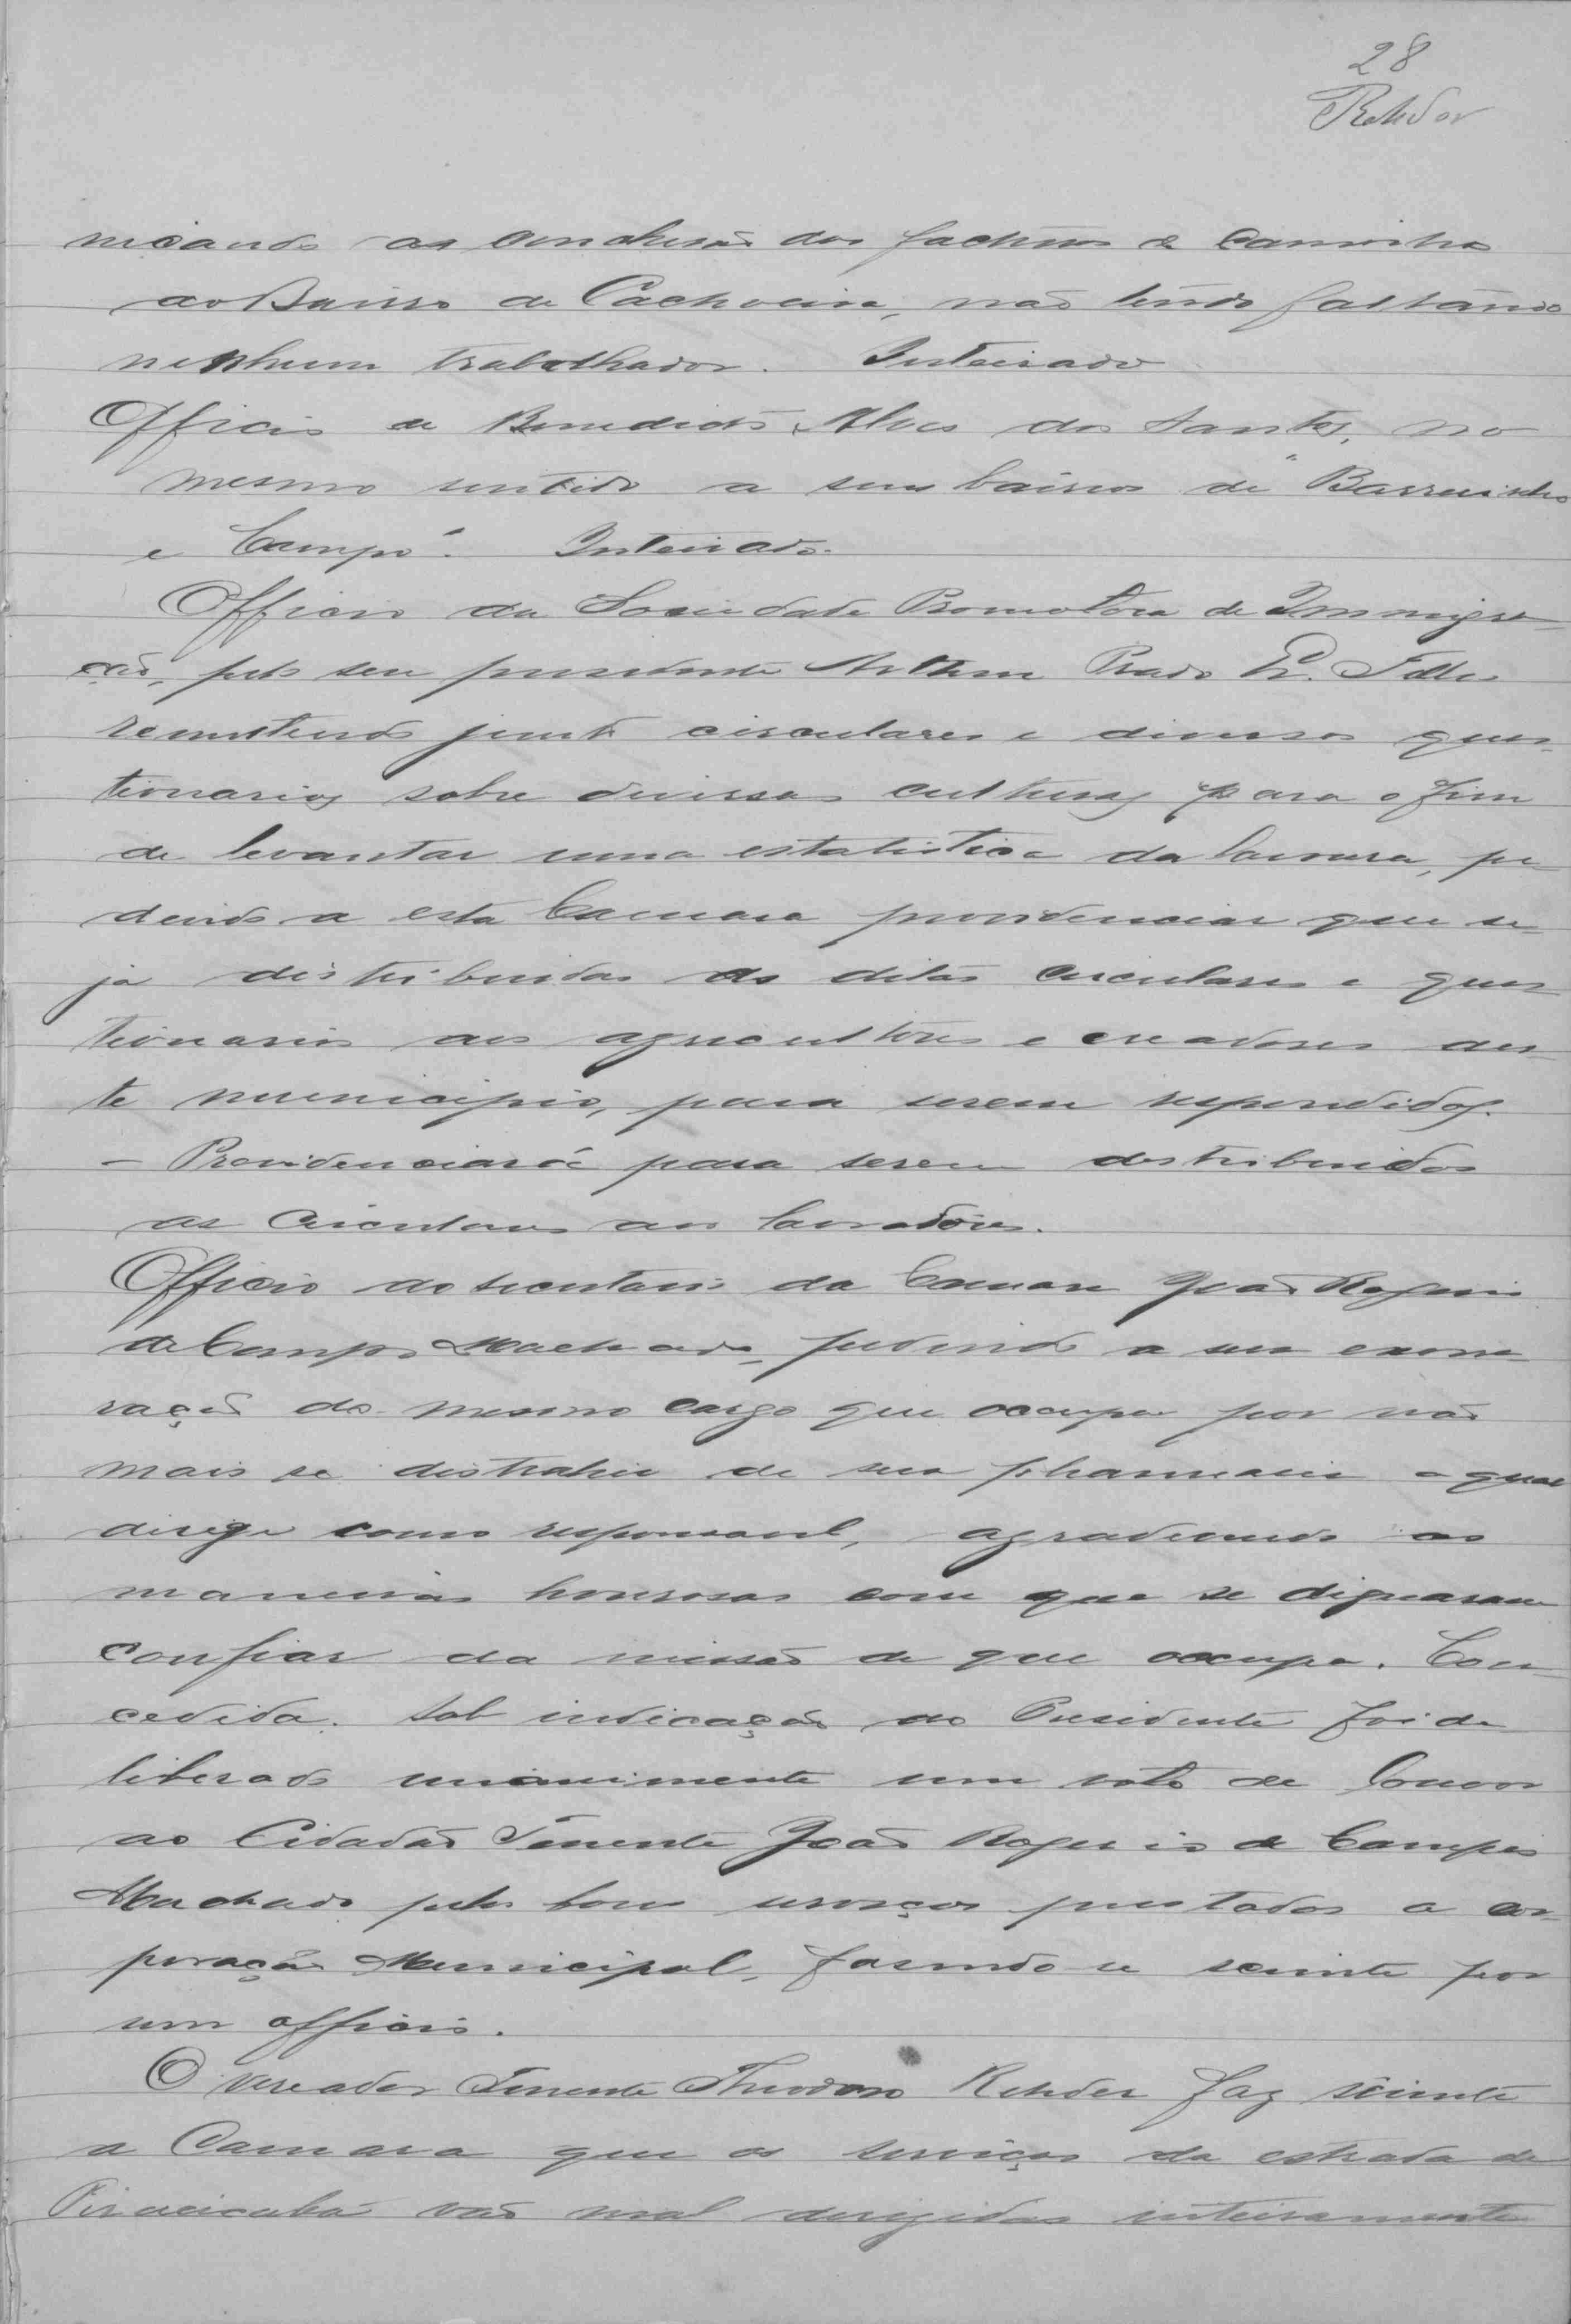 28
Rehder
nicando as conclusão dos factura de caminho
ao Bairro da Cachoeira, não tendo faltando
nenhum trabalhador. Inteirado
Officio de Benedicto Alves dos Santos, no
mesmo sentido a seus bairros de "Barreirinho
e Campo". Inteirado.
Officio da Sociedade Promotora de Immigra-
ção, pelo seu presidente Arthur Prado
remettendo junto circulares e diversos ques-
tionarios sobre diversas culturas para o fim
de levantar uma estatistica da lavoura, pe-
dendo a esta Camara providenciar que se-
ja distribuidas as ditas circulares e ques-
tionarios aos agricultores e creadores des-
te municipio, para serem respondidos.
- Providenciará para serem distribuidos
as circulares aos lavradores.
Officio do secretario da Camara João Rogerio
de Campos Machado, pedindo a sua exone-
ração do mesmo cargo que occupa por não
mais se distrahir de sua pharmacia a qual
derige como responsavel, agradecendo as
maneiras honrosas com que se dignaram
confiar da missão de que occupa. Con-
cedida. Sob indicação do Presidente foi de-
liberado unanimente um voto de louvor
ao Cidadão Tenente João Rogerio de Campos
Machado pelos bons serviços prestados a cor-
poração Municipal, fasendo-se sciente por
um officio.
O vereador Tenente Theodoro Rehder faz sciente
a Camara que os serviços da estrada de
Piracicaba vão mal derigidas inteiramente